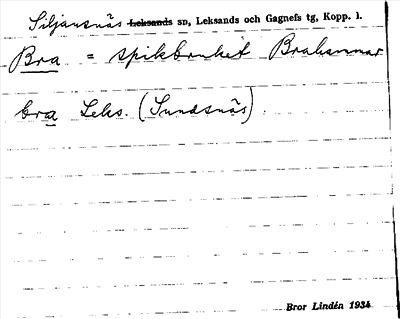 Siljansnäs Leksands sn, Leksands och Gagnefs tg, Kopp. l.
Bra = spikbunket Brabunnar
bra Leks. (Sundsnäs)
Bror Lindén 1934